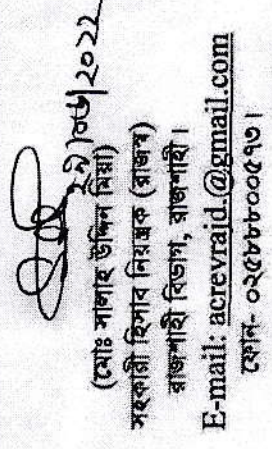 ২৯/০৬/২০২২
(মোঃ সালাহ উদ্দিন মিয়া)
সহকারী হিসাব নিয়ন্ত্রক (রাজস্ব)
রাজশাহী বিভাগ, রাজশাহী।
E-mail: acrevrajd.@gmail.com
ফোন- ০২৫৮৮৮০০৫৭৩।